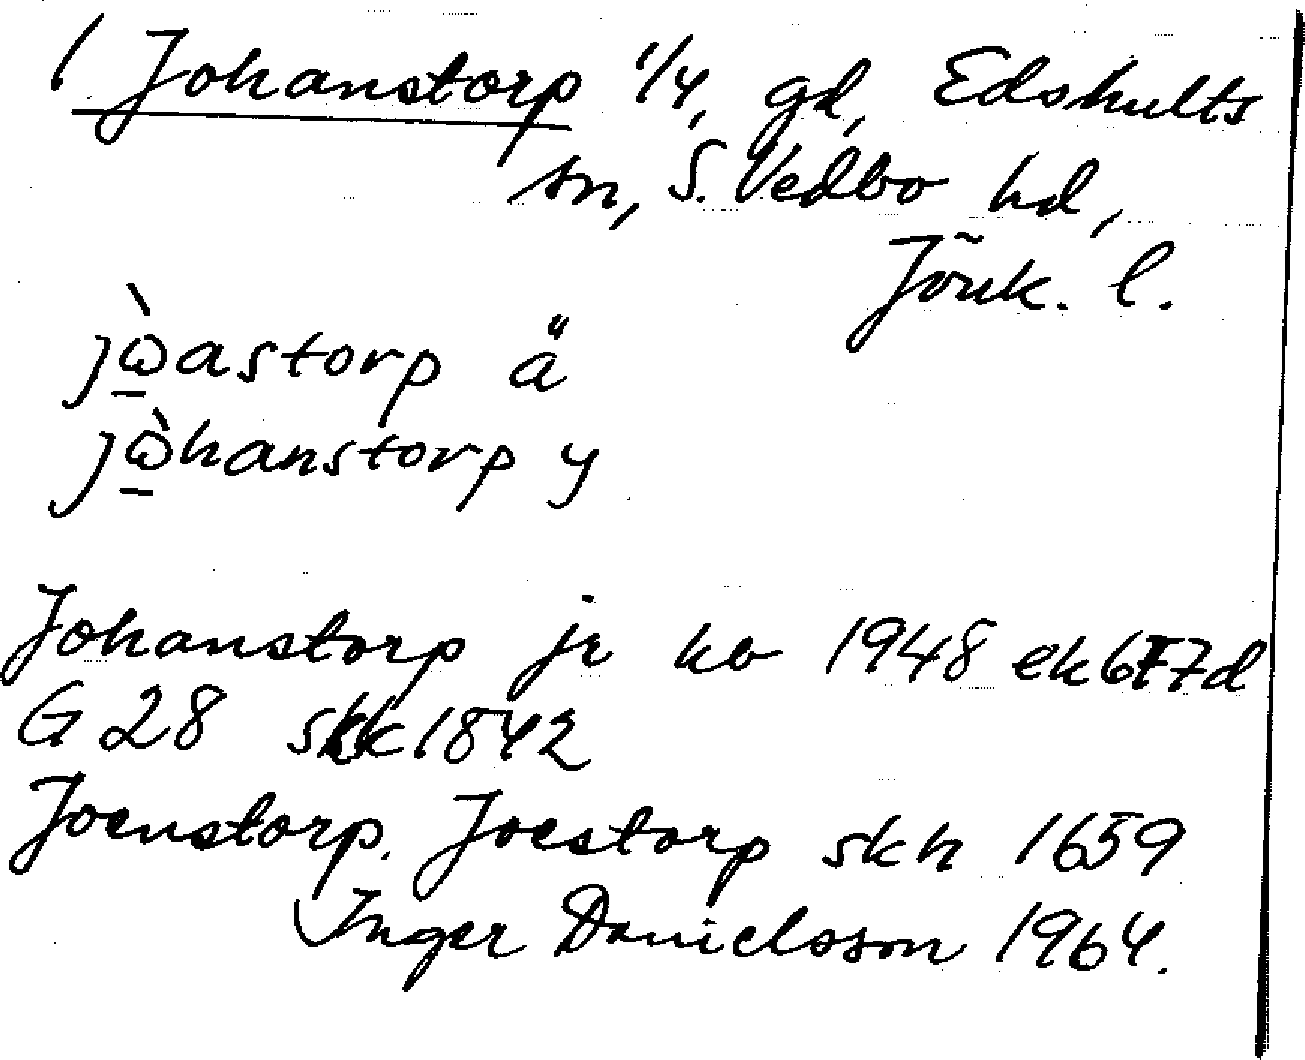 / Johanstorp 1/4, gd, Edshults
sn, S. Vedbo hd,
Jönk. l.
jὼ̲astorp ä
jὼ̲hanstorp y
Johanstorp je kb 1948 ek 677d
G 28 skk 1842
Joenstorp. Joestorp skh 1659
Inger Danielsson 1964.